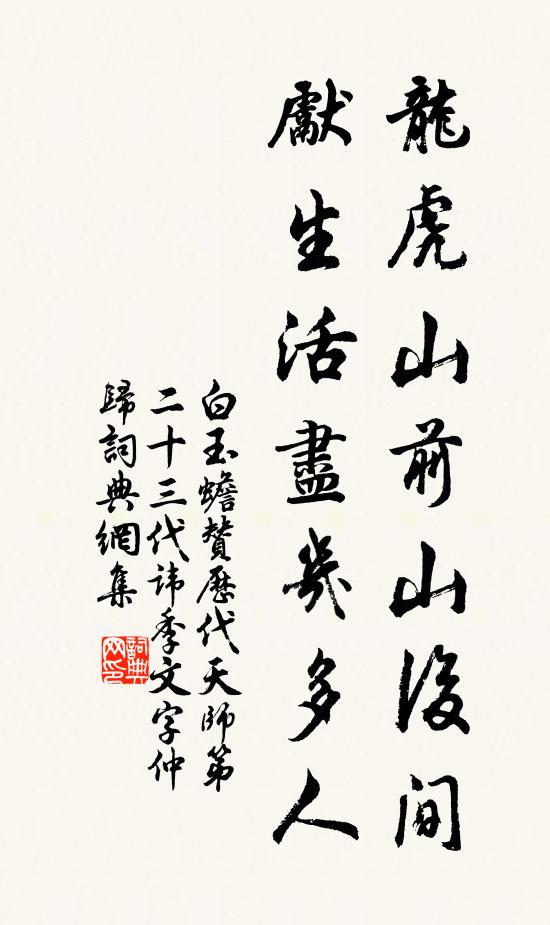 龍虎山前山後間
獻生活盡幾多人
白玉蟾贊歷代天師第
二十三代諱季文字仲
歸詞典網集
詞典网印